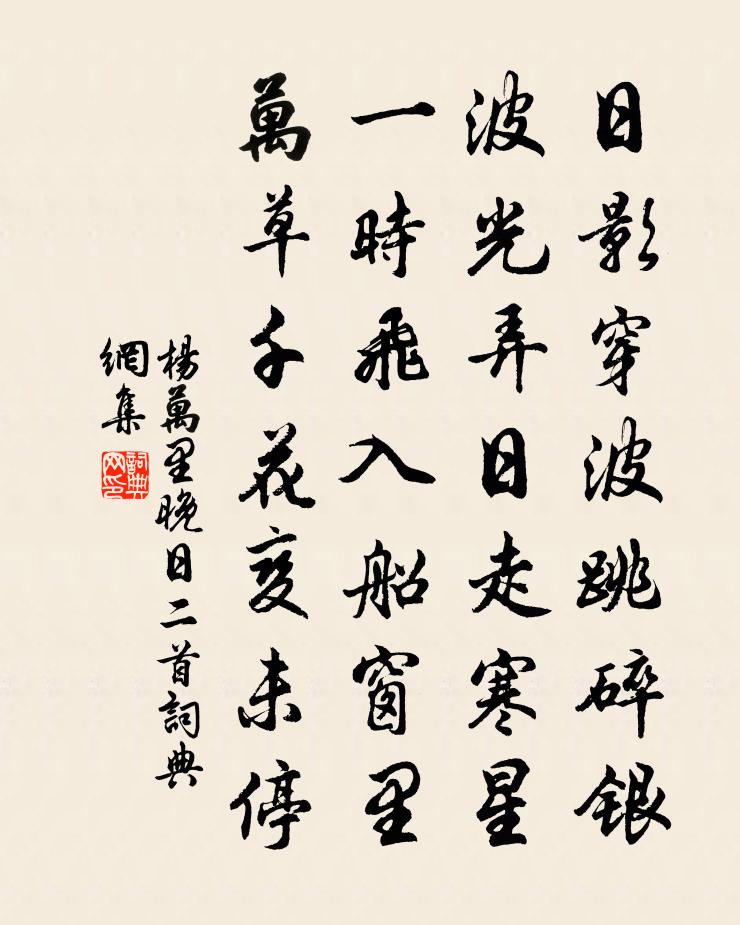 日影穿波跳碎銀
波光弄日走寒星
一時飛入船窗里
萬草千花变未停
楊萬里晚日二首詞典
網集
詞典
网印